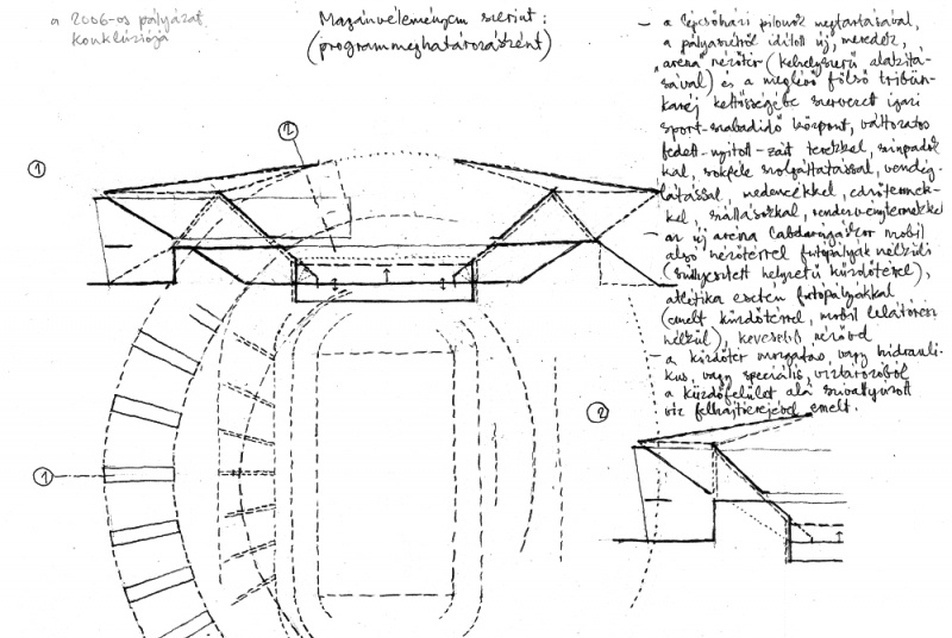 a 2006-os pályázat
konklúziója
Magánvéleményem szerint:
(programmeghatározásként)
— a lépcsőházi pilonok megtartásával,
a pályaszéltől indított új, meredek,
„aréna" nézőtér (kehelyszerű alakítá-
sával) és a meglévő fölső tribün-
karéj kettősségébe szervezet igazi
sport-szabadidő központ, változatos
fedett-nyitott-zárt terekkel, színpadok-
kal, sokféle szolgáltatással, vendég-
látással, medencékkel, edzőtermek-
kel, szállásokkal, rendezvénytermekkel
— az új aréna labdarúgáskor mobil
alsó nézőtérrel futópályák nélküli
(süllyesztett helyzetű küzdőtérrel),
atlétika esetén futópályákkal
(emelt küzdőtérrel, mobil lelátórész
nélkül), kevesebb nézővel
— a küzdőtér mozgatás, vagy hidrauli-
kus, vagy speciális, víztározóból
a küzdőfelület alá szivattyúzott
víz felhajtóerejével emelt.
2
1
2
1